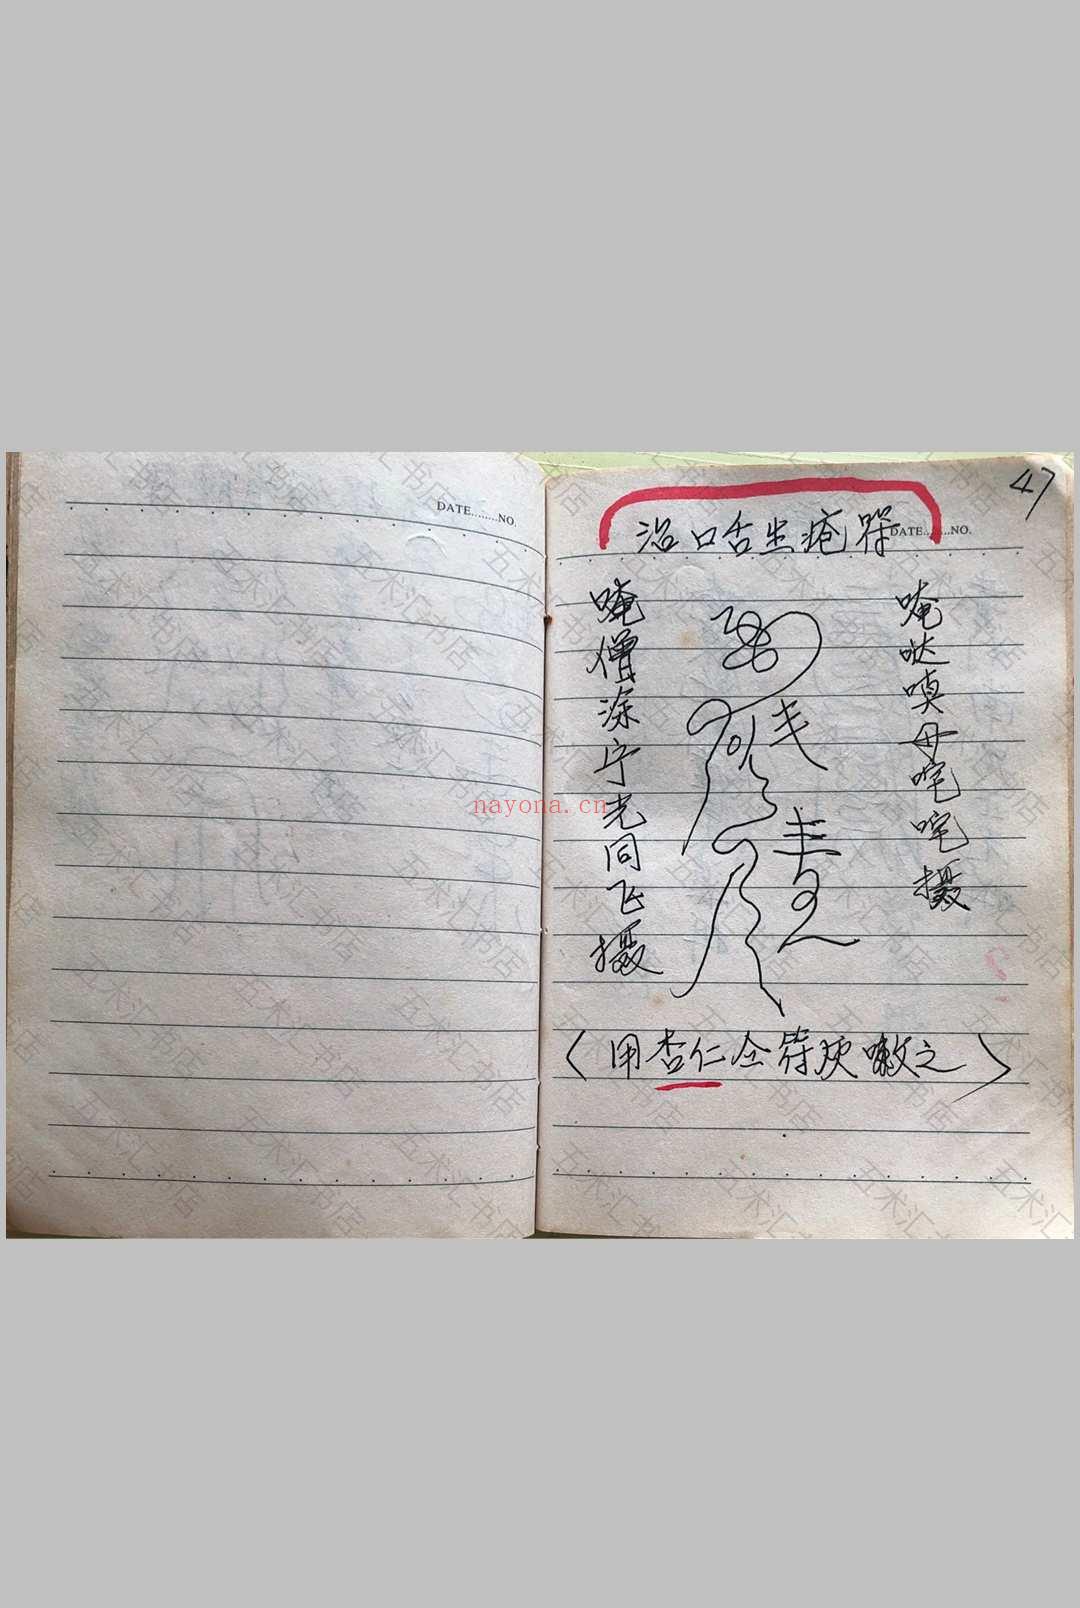 47
DATE........NO.
DATE........NO.
治口舌生疮符
唵哒嗔母咤咤摄
唵僧涤宁光同飞摄
（用杏仁仝符灰嗽之）
nayona.cn
五术汇书店